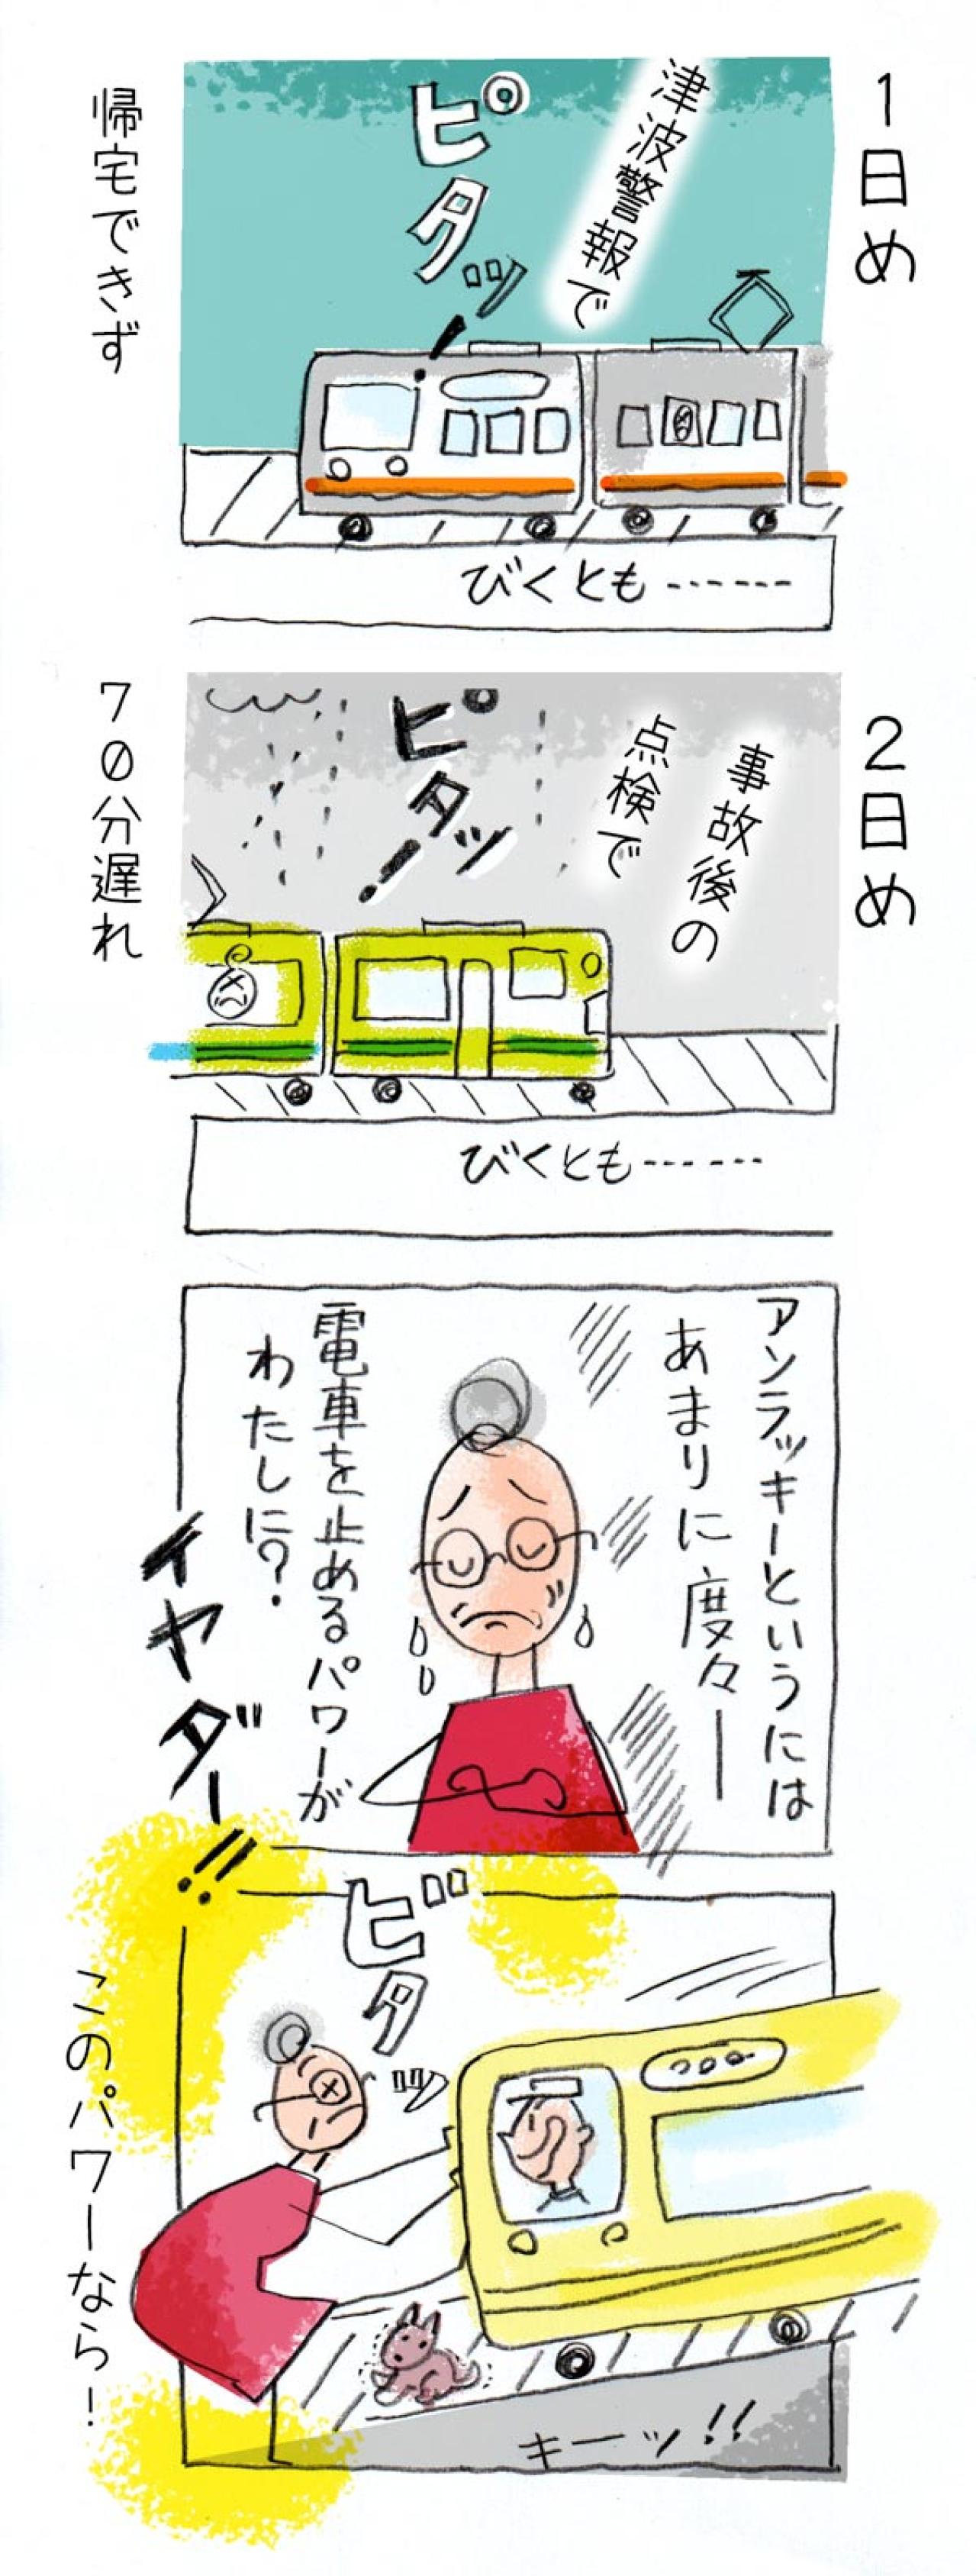 1日め
津波警報で
ピタッ!
帰宅できず
びくとも……
2日め
事故後の
点検で
ピタッ!
70分遅れ
びくとも……
アンラッキーというには
あまりに度々ー
電車を止めるパワーが
わたしに?
イヤダー!!
ビタッ
このパワーなら!
キーッ!!